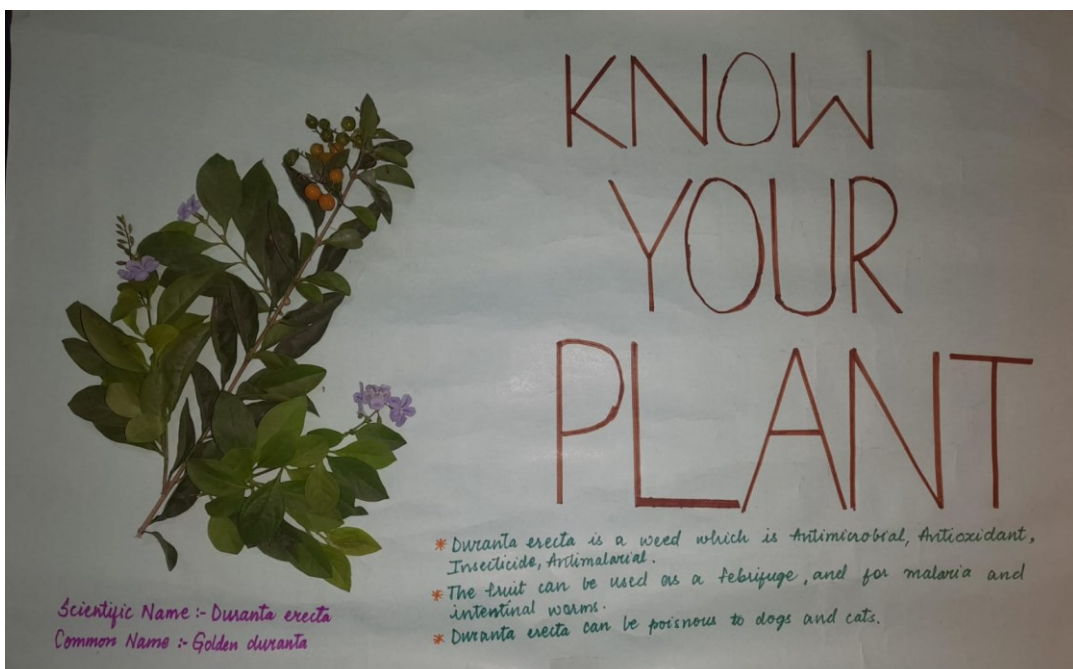 KNOW
YOUR
PLANT
* Duranta erecta is a weed which is Antimicrobial, Antioxidant,
Insecticide, Antimalarial.
* The fruit can be used as a febrifuge, and for malaria and
intentinal worms.
* Duranta erecta can be poisnous to dogs and cats.
Scientific Name :- Duranta erecta
Common Name :- Golden duranta